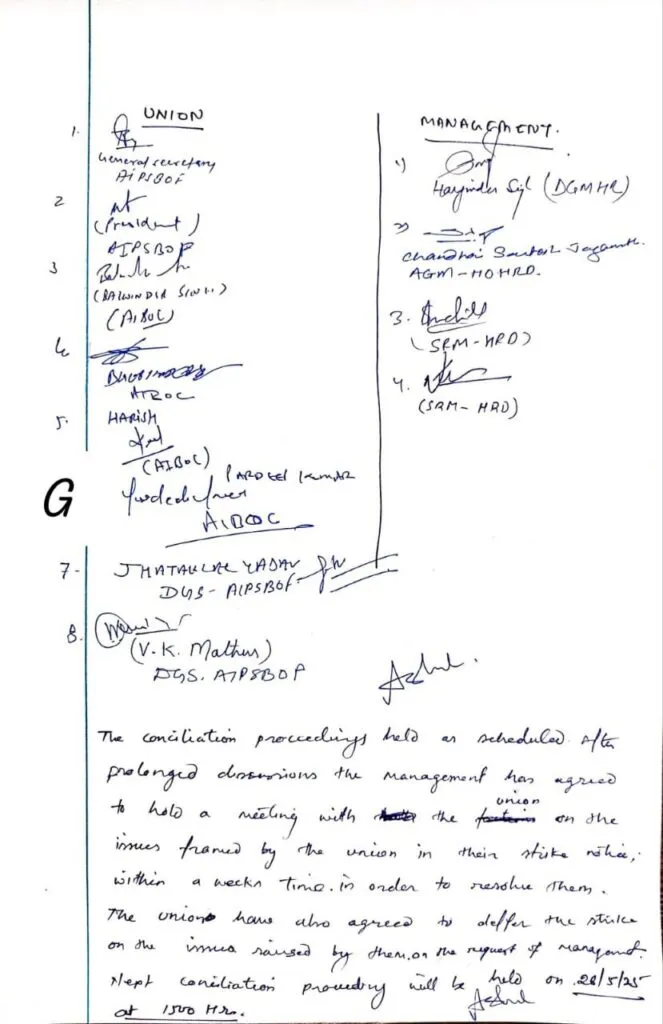 UNION
1.
General secretary
AIPSBOF
2
(President)
AIPSBOF
3
(BALWINDER SINGH)
(AIBOC)
4
AIBOC
5.
HARISH
(AIBOC)
PARDEEP KUMAR
G
AIBOC
7-
YADAV
DGS- AIPSBOF
8.
(V.K. Mathur)
DGS. AIPSBOF
MANAGEMENT.
1)
Harjinder Singh (DGMHR)
2)
AGM-HOHRD.
3.
(SRM-HRD)
4.
(SRM-HRD)
The conciliation proceedings held as scheduled. After
prolonged discussions the management has agreed
to hold a meeting with the union on the
issues framed by the union in their strike notice,
within a weeks time. in order to resolve them.
The unions have also agreed to deffer the strike
on the issues raised by them. on the request of management.
Next conciliation proceeding will be held on 28/5/25
at 1500 Hrs.